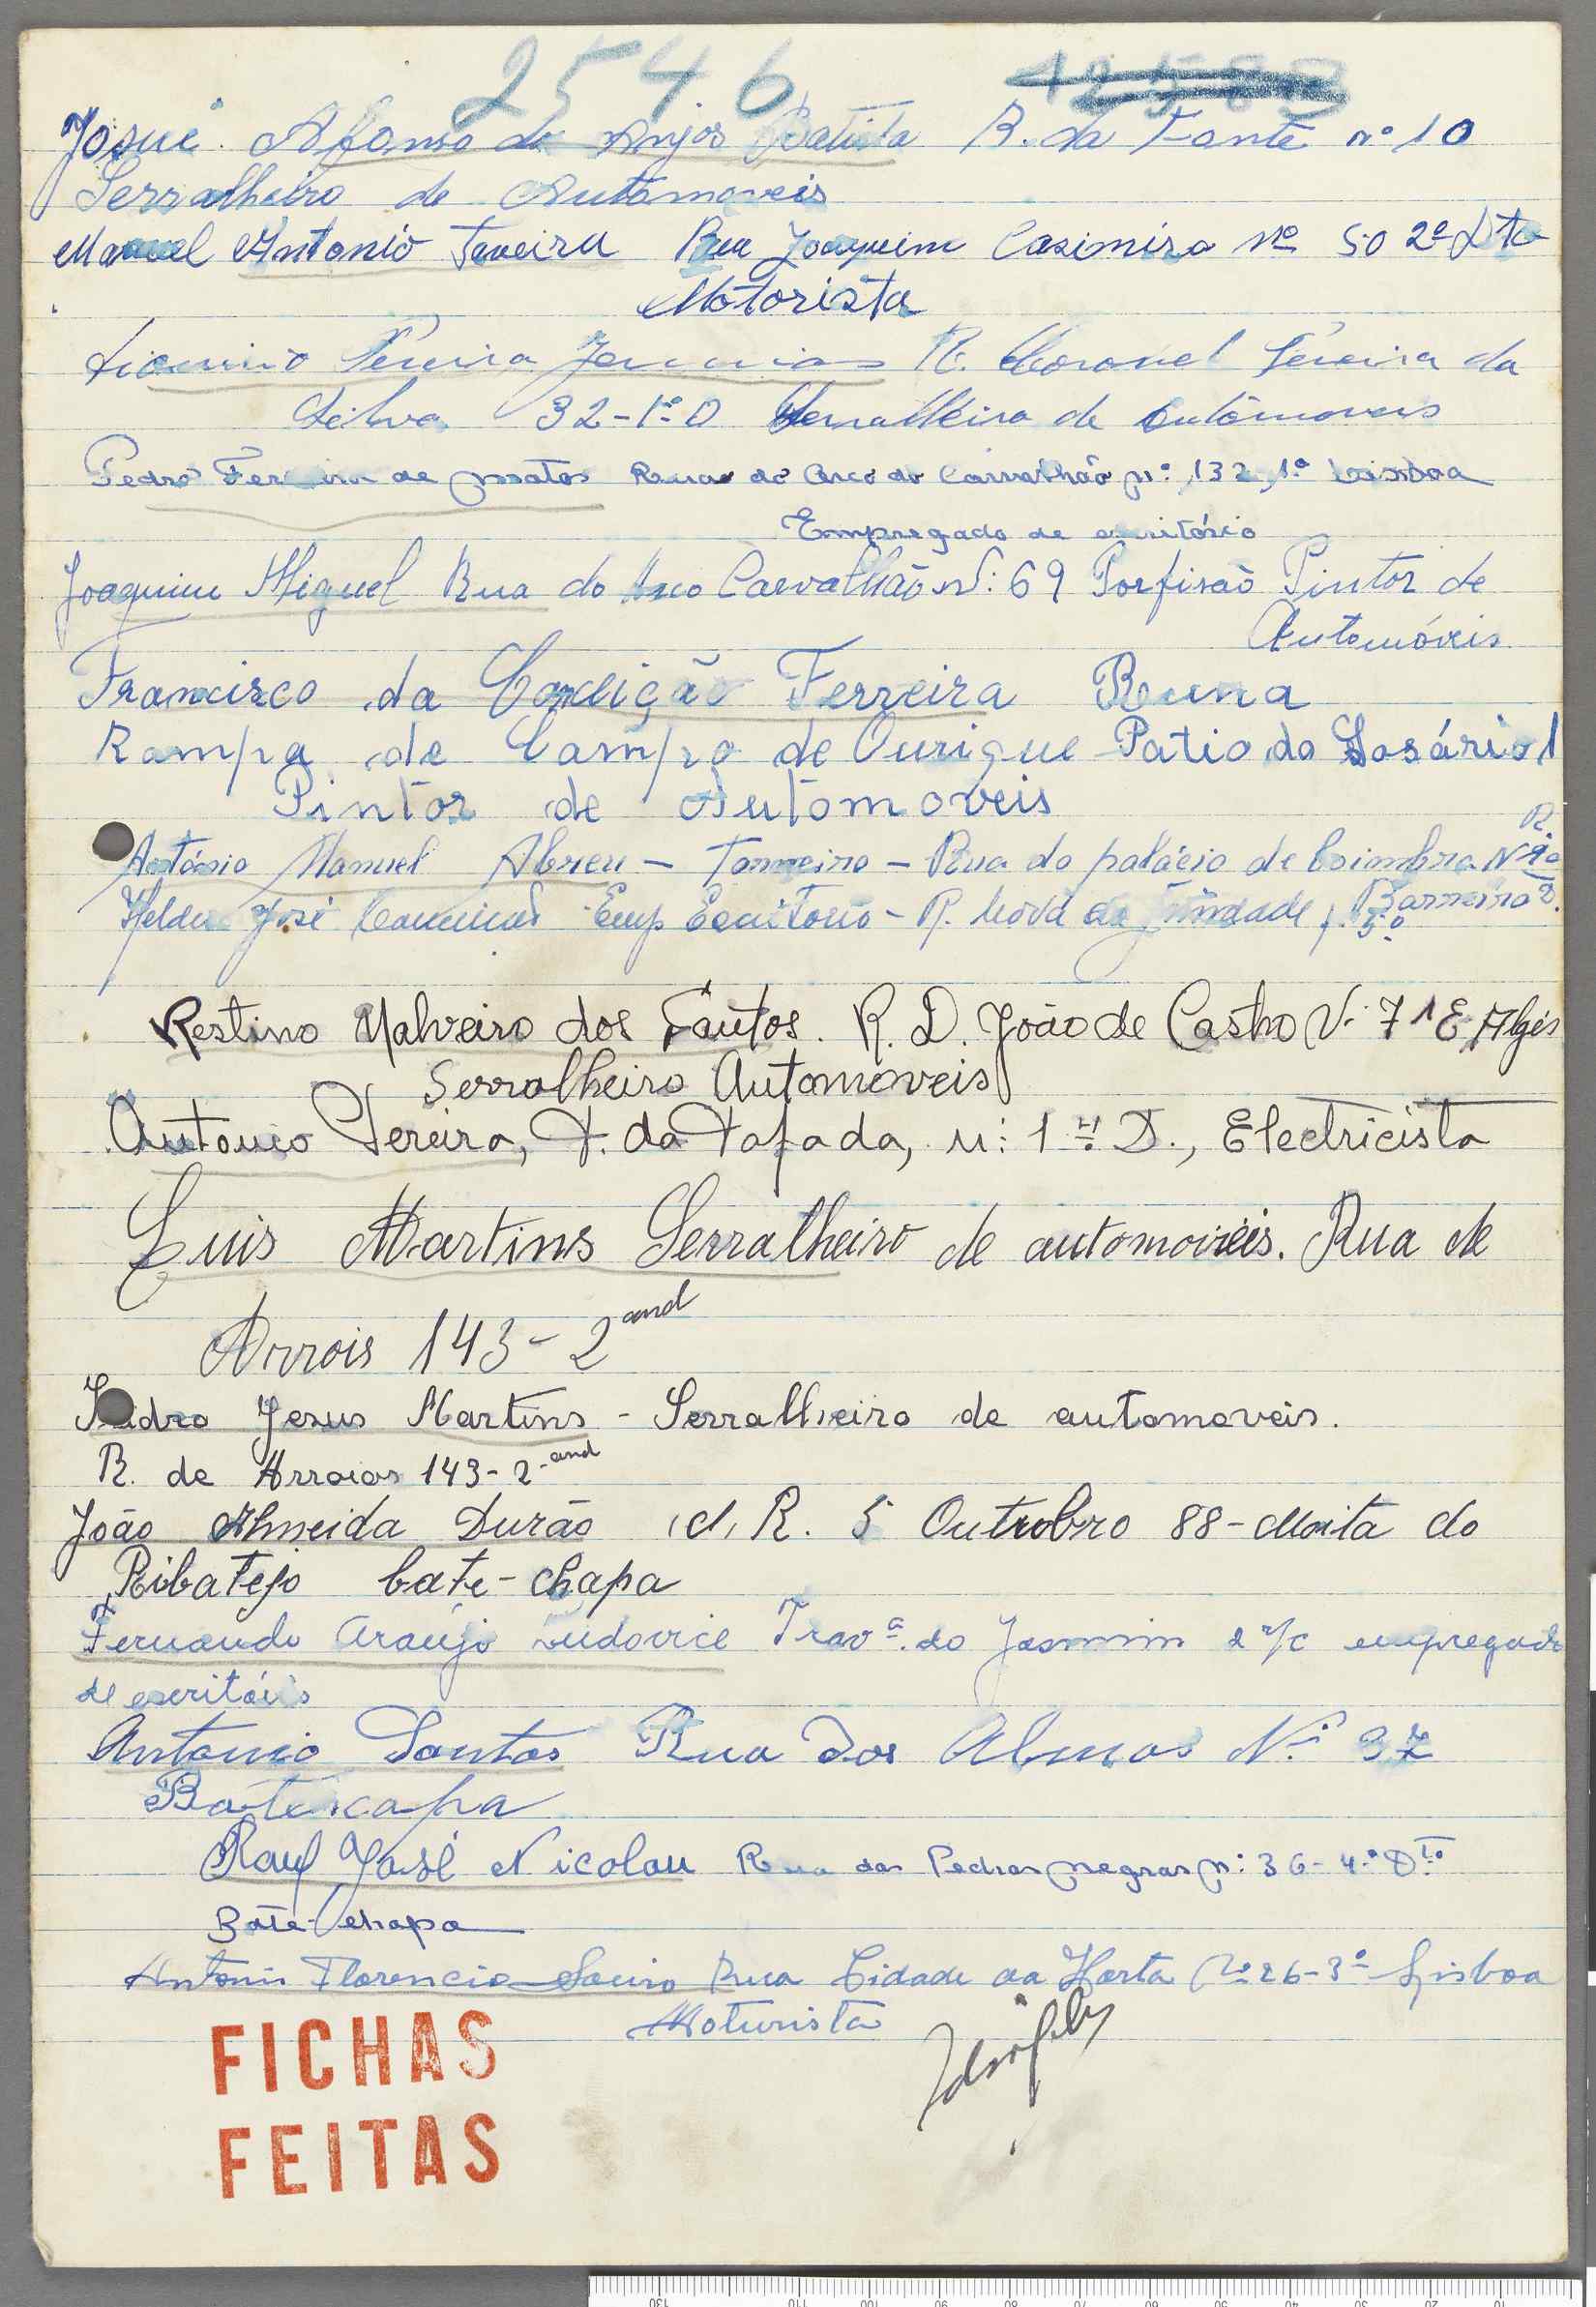 2546
Josué Afonso de Anjos Batista R. da Fonte nº 10
Serralheiro de Automoveis
Manuel Antonio Taveira Rua Joaquim Casimiro Nº 50 2º Dto
Motorista
Pereira R. Coronel Pereira da
Silva 32-1º D Serralheiro de autómoveis
Pedro Ferreira de Matos Rua do Arco do Carvalhão nº 132, 1º Lisboa
Empregado de escritório
Joaquim Miguel Rua do Arco Carvalhão N: 69 Porfisão Pintor de
Automóveis
Francisco da Conceição Ferreira Runa
Rampa de Campo de Ourique Patio do 1
Pintor de Automoveis
António Manuel Abreu - Torneiro - Rua do palácio de Coimbra Nº
Barreiro
Helder José Emp Escritorio - R. Nova da Trindade, 5º
Restino Malveiro dos Santos. R. D. João de Castro N: 7 1 E, Algés
Serralheiro Automoveis
Antonio Pereira, T. da Tapada, n: 1 D., Electricista
Luis Martins Serralheiro de automoveis. Rua de
Arrois 143 - 2 and
Jesus Martins - Serralheiro de automoveis.
R. de Arroios 143 - 2 - and
João Almeida Durão R. 5 Outrobro 88 - Moita do
Ribatejo bate-chapa
Fernando Araújo Ludovice Travª. do Jasmim 2 r/c empregado
de escritório
Antonio Santos Rua Dos Almas Nº 37
Batecapa
Raul José Nicolau Rua das Pedras negras n: 36 - 4º Dto
Bate-chapa
Antonio Florencio Rua Cidade da Horta Nº 26-3º Lisboa
Moturista
FICHAS
FEITAS